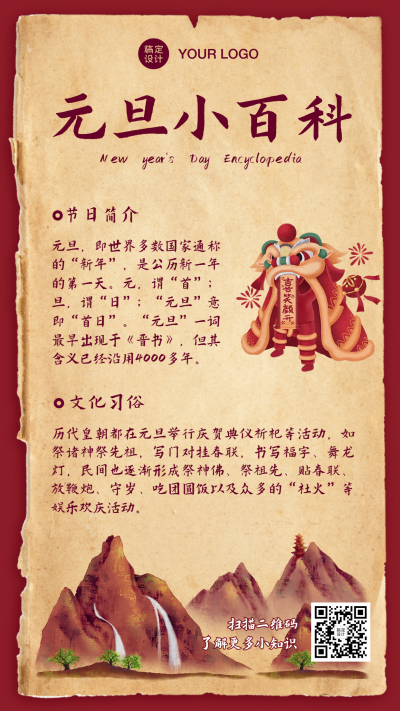 稿定
设计
YOUR LOGO
元旦小百科
New year's Day Encyclopedia
节日简介
元旦，即世界多数国家通称
的“新年”，是公历新一年
的第一天。元，谓“首”；
旦，谓“日”；“元旦”意
即“首日”。“元旦”一词
最早出现于《晋书》，但其
含义已经沿用4000多年。
喜笑颜开
文化习俗
历代皇朝都在元旦举行庆贺典仪祈祀等活动，如
祭诸神祭先祖，写门对挂春联，书写福字、舞龙
灯，民间也逐渐形成祭神佛、祭祖先、贴春联、
放鞭炮、守岁、吃团圆饭以及众多的“社火”等
娱乐欢庆活动。
扫描二维码
了解更多小知识
稿定
设计